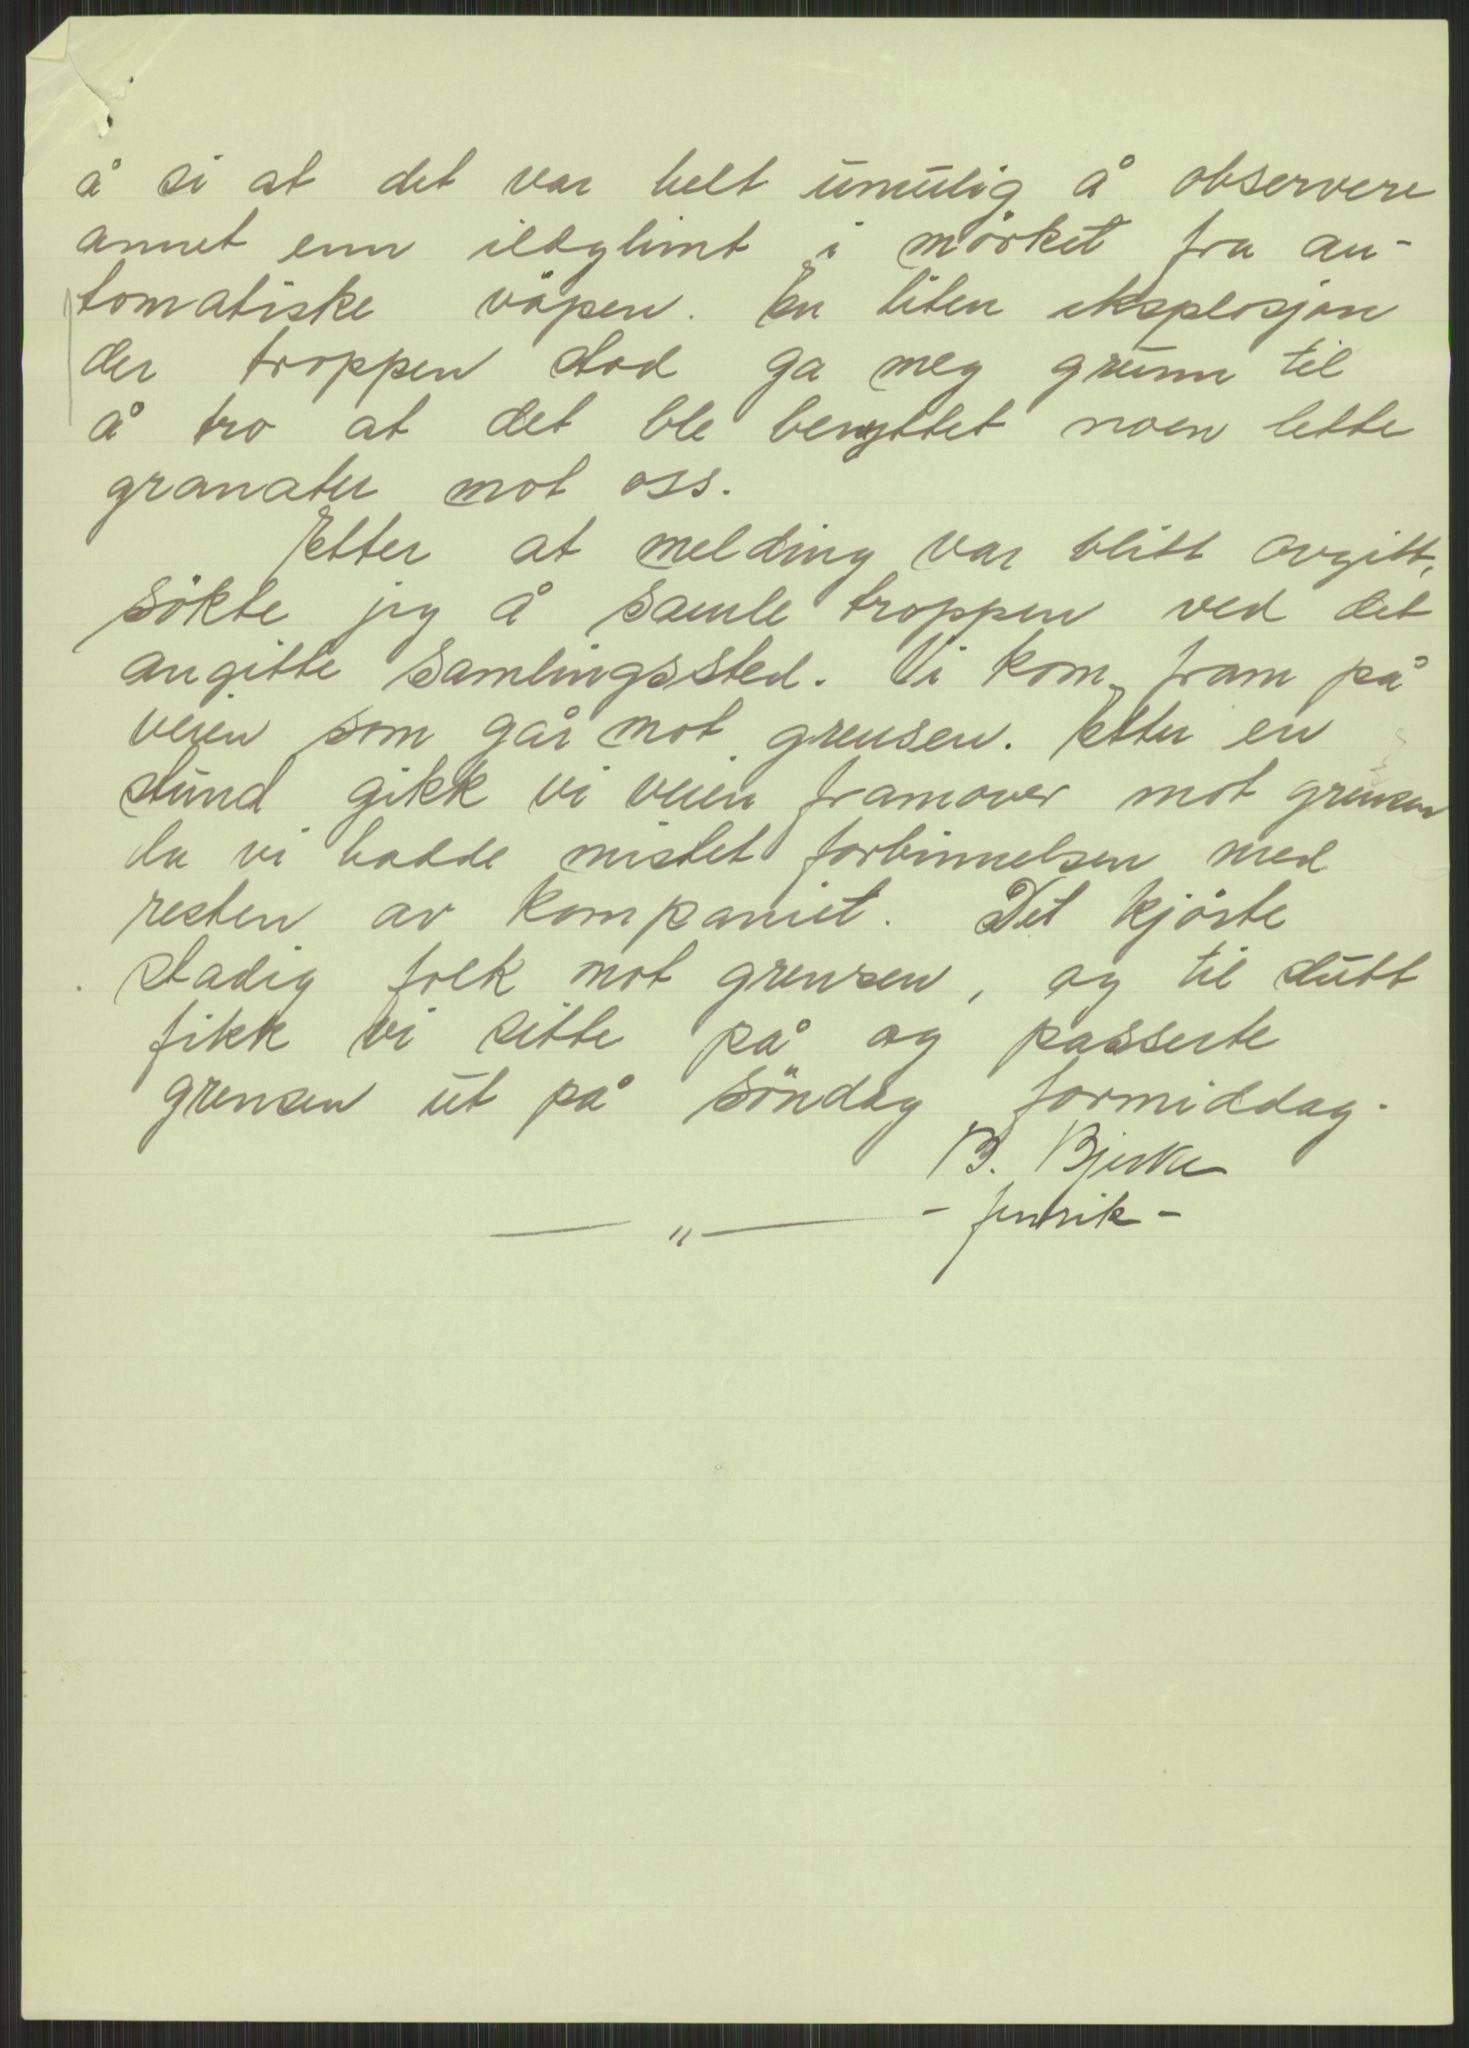 å si at det var helt umulig å observere
annet enn ildglimt i mörket fra au-
tomatiske våpen. En liten eksplosjon
der troppen stod ga meg grunn til
å tro at det ble benyttet noen lette
granater mot oss.
Etter at melding var blitt avgitt,
sökte jeg å samle troppen ved det
angitte samlingssted. Vi kom fram på
veien som går mot grensen. Etter en
stund gikk vi veien framover mot grensen
da vi hadde mistet forbinnelsen med
resten av kompaniet. Det kjörte
stadig folk mot grensen, og til slutt
fikk vi sitte på og passerte
grensen ut på söndag formiddag.
B. Bjerke
- fenrik -
— " —